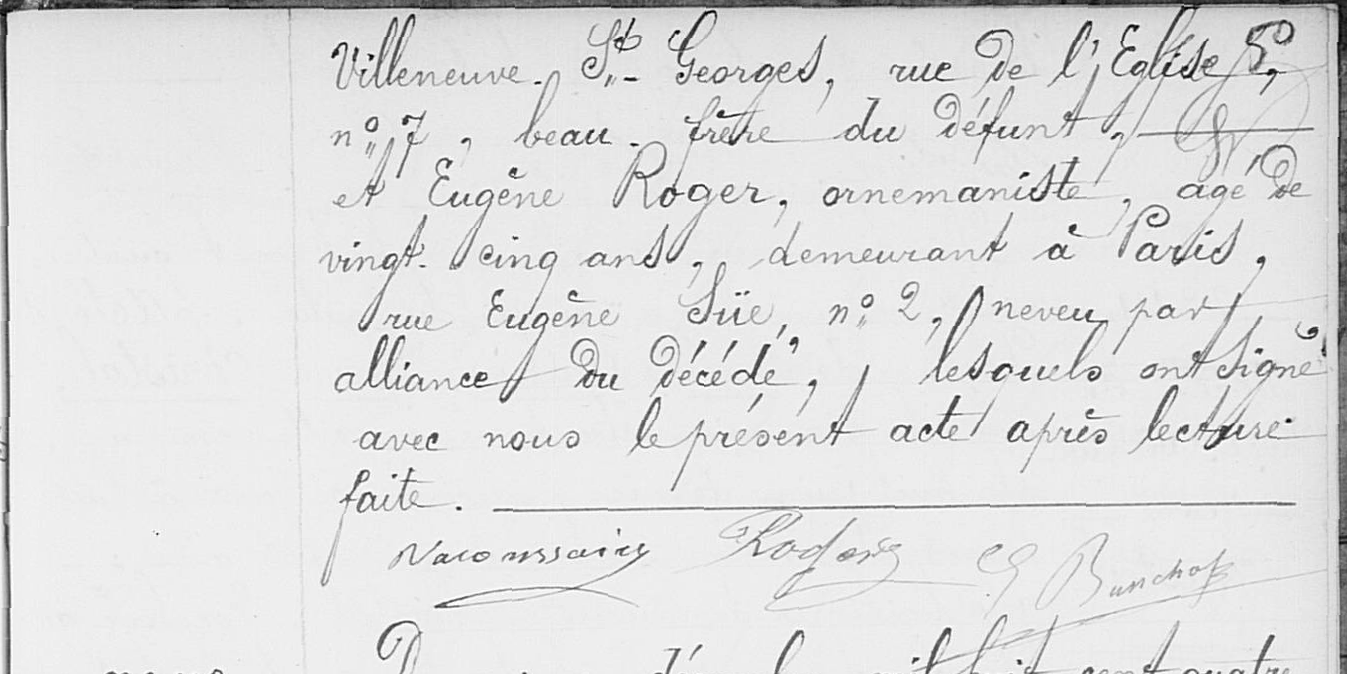 Villeneuve-St-Georges, rue de l'Eglise,
n° 7, beau-frère du défunt,
et Eugène Roger, ornemaniste, agé de
vingt-cinq ans, demeurant à Paris,
rue Eugène Süe, n° 2, neveu par
alliance du décédé, lesquels ont signé
avec nous le présent acte après lecture
faite.